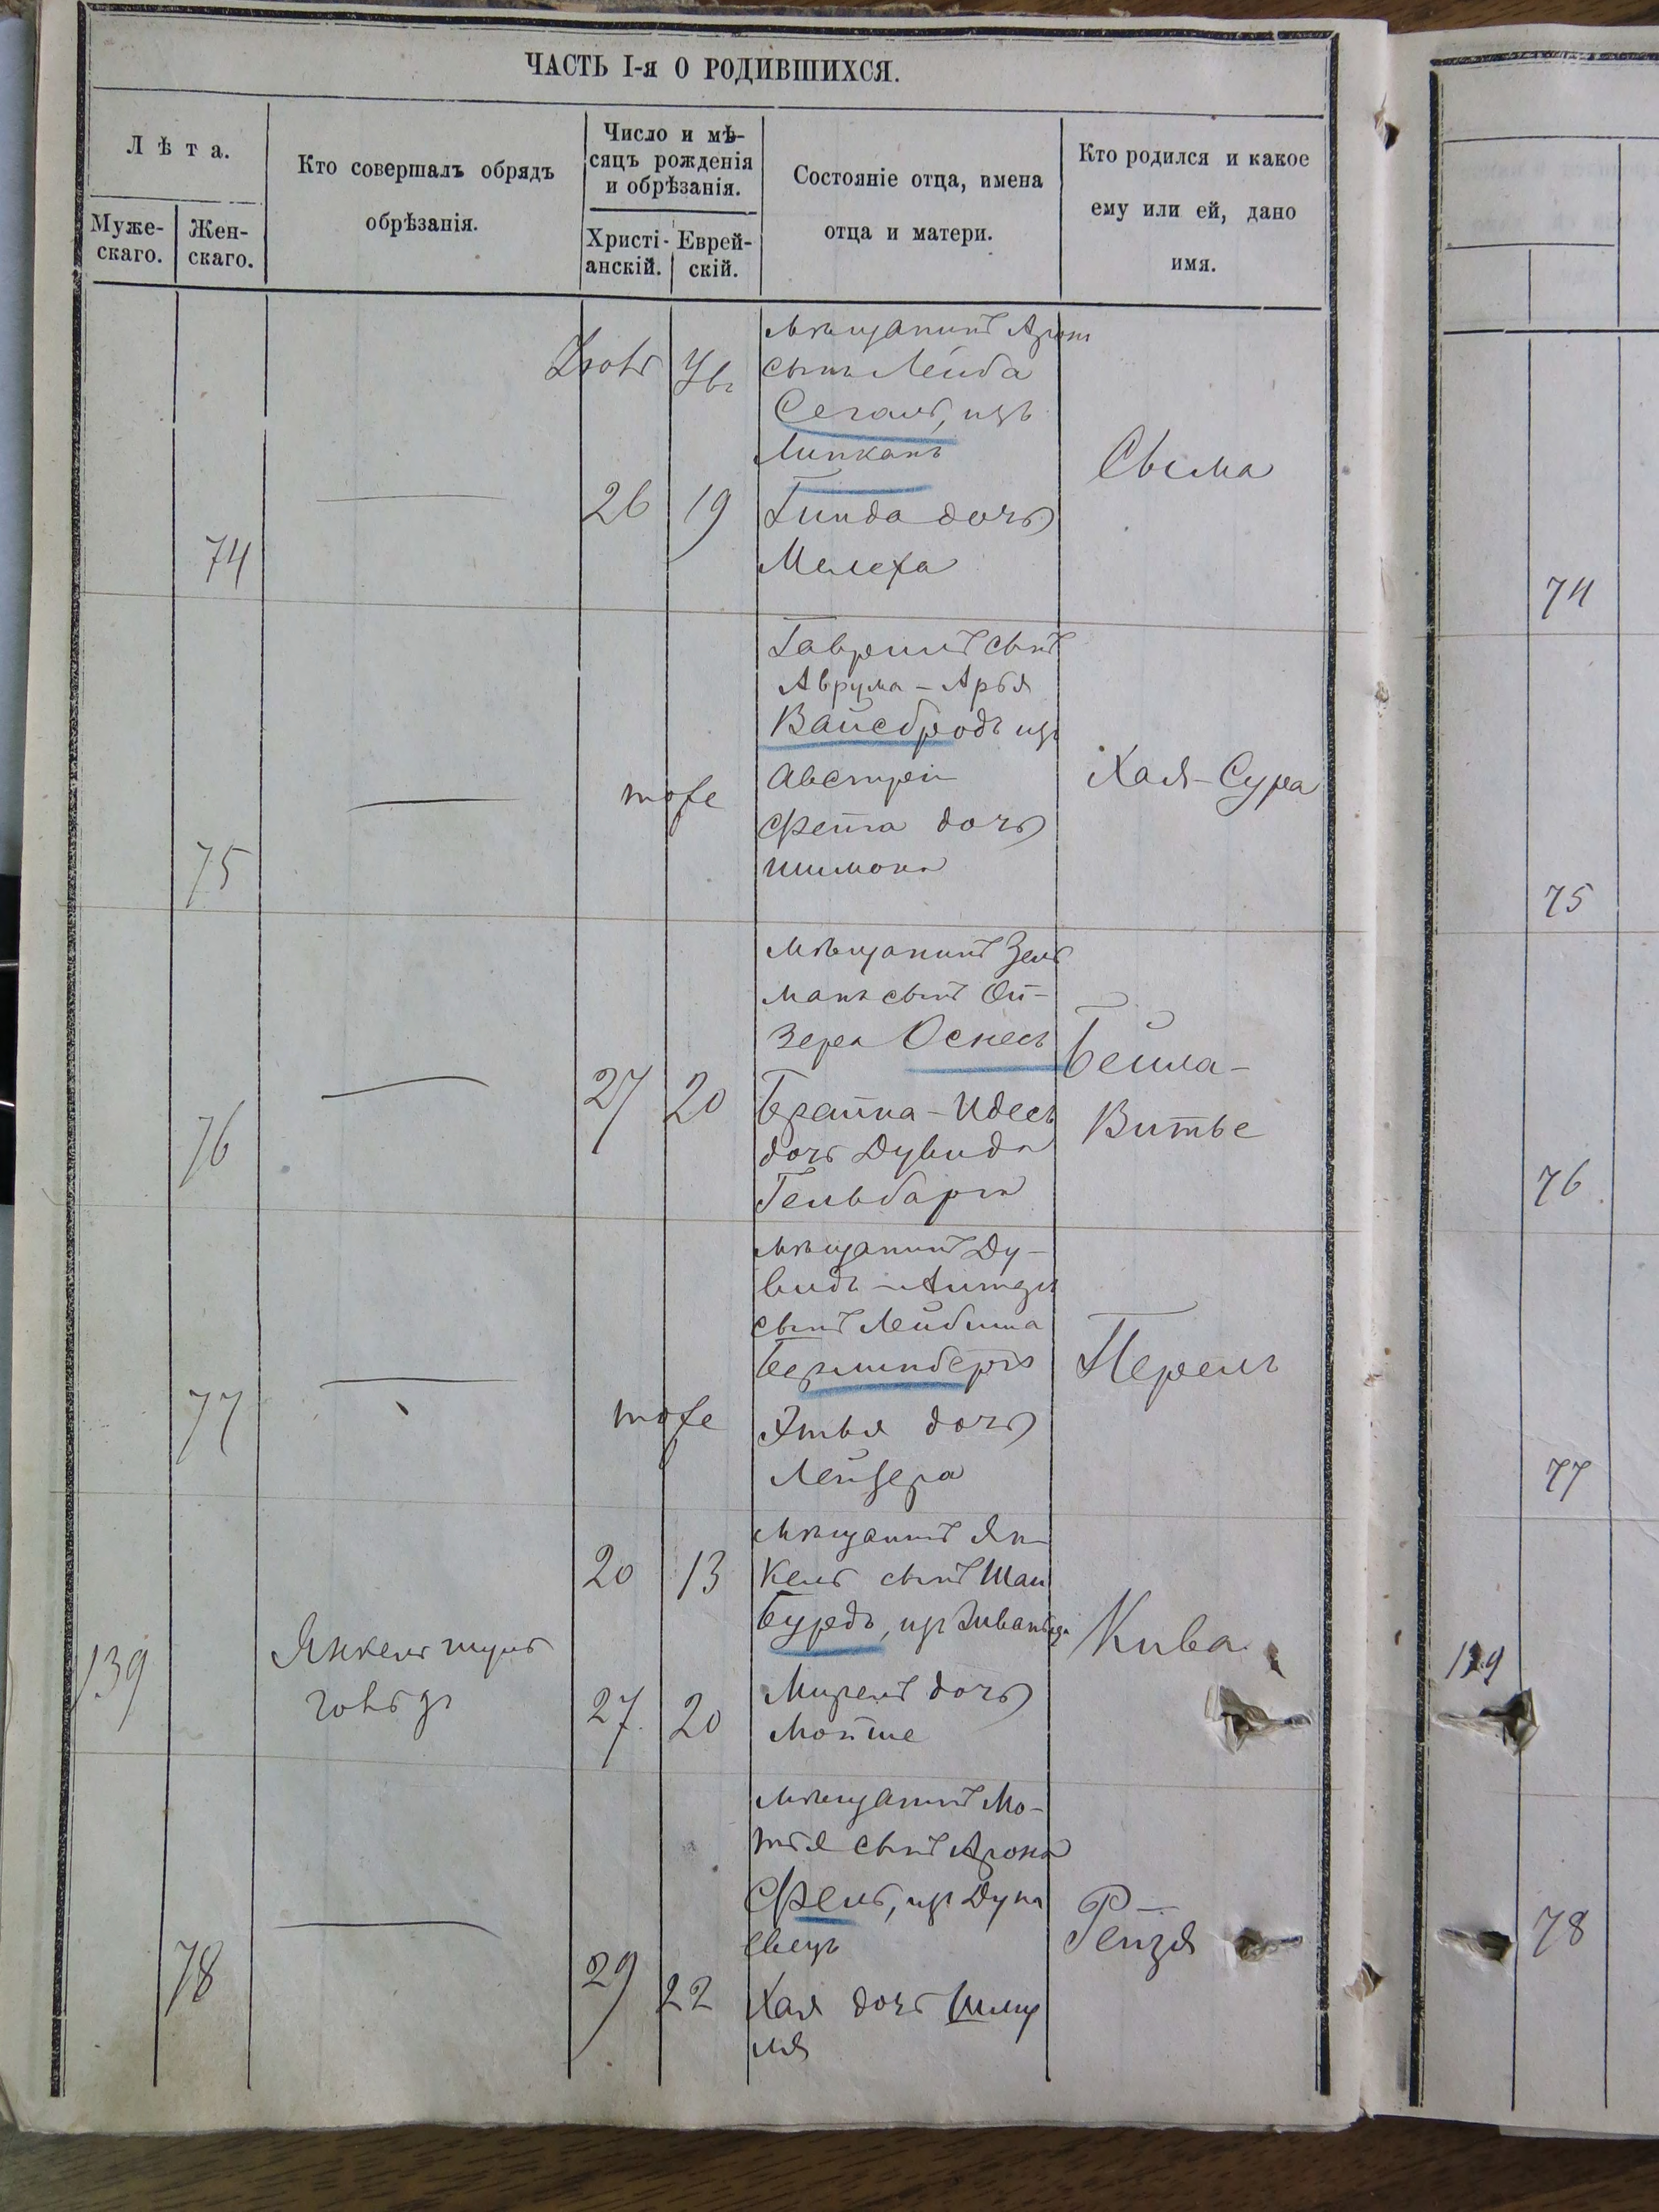 ЧАСТЬ I-я О РОДИВШИХСЯ.
Лѣта.
Муже-
скаго.
Жен-
скаго.
Кто совершалъ обрядъ
обрѣзанія.
Число и мѣ-
сяцъ рожденія
и обрѣзанія.
Христі-
анскій.
Еврей-
скій.
Состояніе отца, имена
отца и матери.
Кто родился и какое
ему или ей, дано
имя.
74
26
19
мѣщанинъ Аронъ
сынъ Лейба
Сегаль, изъ
Липканъ
Гинда дочь
Мелеха
Сыма
74
75
тоже
Гаврилъ сынъ
Аврума-Арья
Вайсбродъ изъ
Австреи
Фейга дочь
Шимона
Хая-Сура
75
76
27
20
мѣщанинъ Зель
манъ сынъ Ой-
зера Оснесъ
Брайна-Идесъ
дочь Дувида
Гельбарга
Бейла-
Витье
76
77
тоже
мѣщанинъ Ду-
видъ-
сынъ Лейбиша
Берлинбергъ
Этья дочь
Лейзера
Перель
77
139
Янкель
20
13
27
20
мѣщанинъ Ян
кель сынъ Шаи
Бурдъ, изъ
Мирель дочь
Мойше
Кива
139
78
29
22
мѣщанинъ Мо-
тья сынъ Арона
Фель, изъ Дуна
евецъ
Хая дочь Шму
ля
Рейзя
78